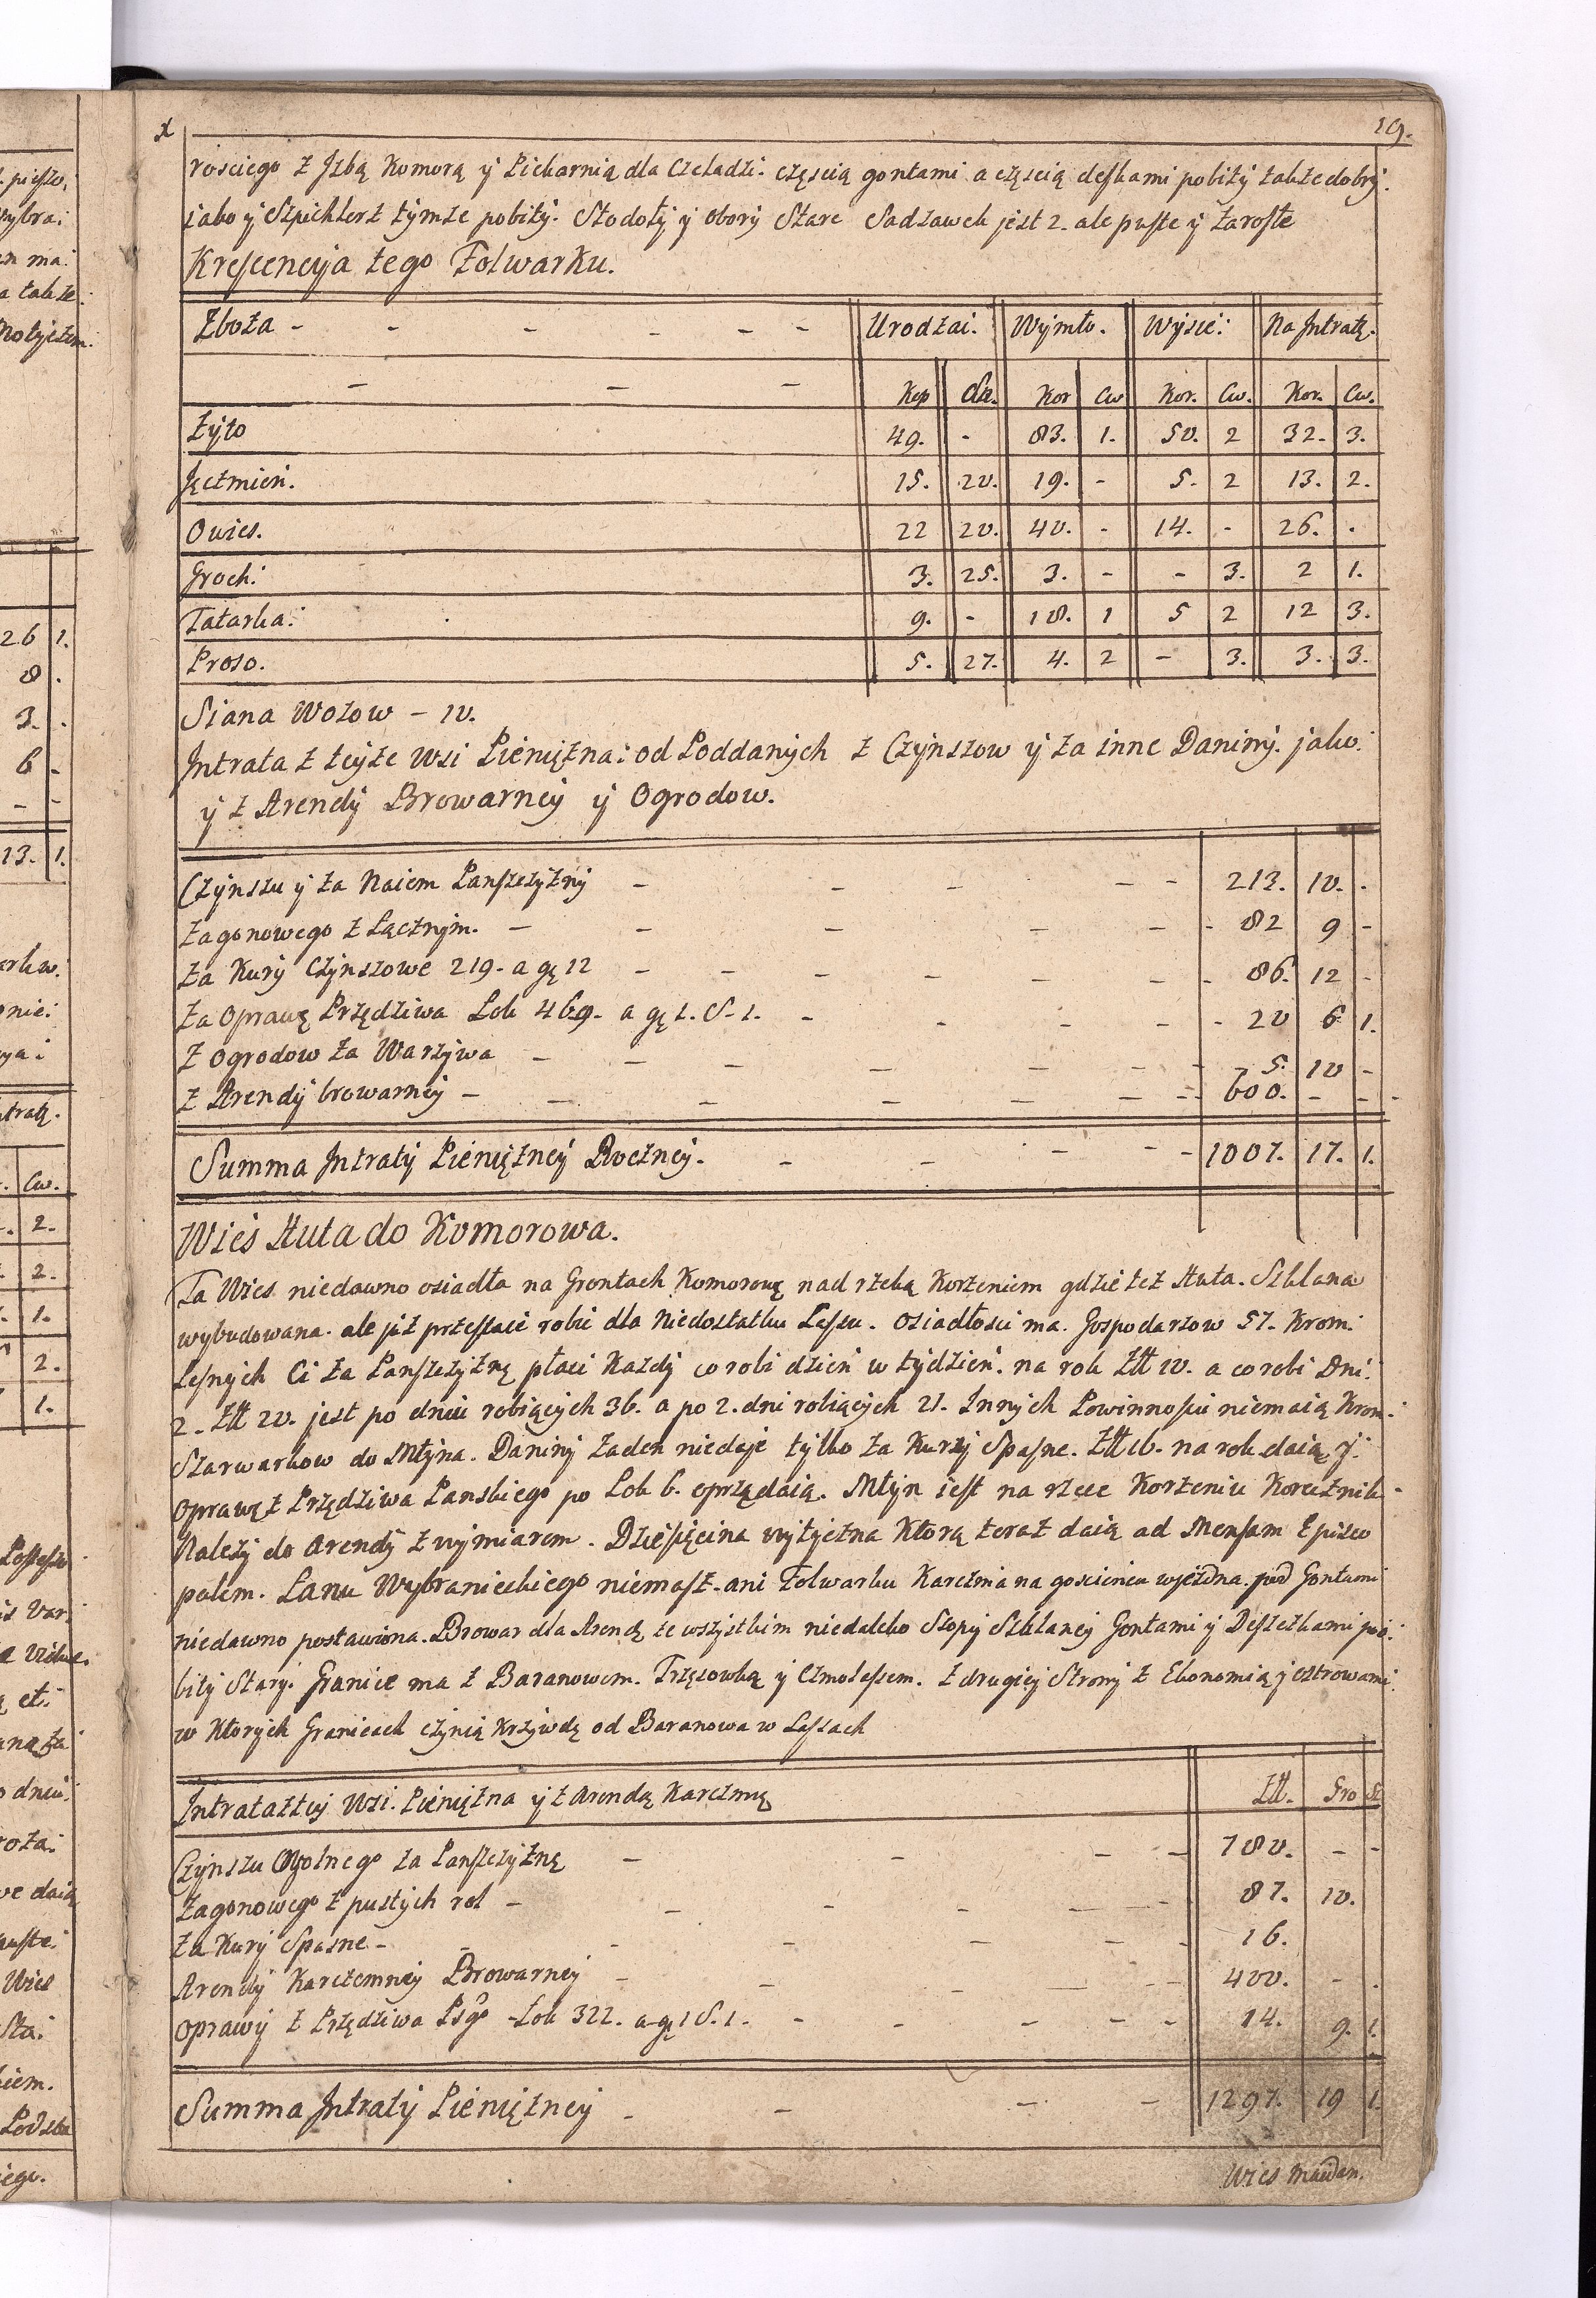 19.
rosciego z Jzbą Komorą y Piekarnią dla Czeladzi. częscią gontami a częscią deskami pobity także dobry.
jako y Szpichlerz tymże pobity. Stodoły y obory Stare Sadzawek jest 2. ale puste y zarosłe
Krescencyja tego Folwarku.
Zboża - - - - - - Urodzai. Wymło. Wysie: Na Jntratę.
- - - Kop Sn. Kor Cw Kor. Cw. Kor. Cw.
Żyto 49. - 83. 1. 50. 2 32. 3.
Jęczmień. 15. 20. 19. - 5. 2 13. 2.
Owies. 22 20. 40. - 14. - 26. .
Groch: 3. 25. 3. - - 3. 2 1.
Tatarka: 9. - 18. 1 5 2 12 3.
Proso. 5. 27. 4. 2 - 3. 3. 3.
Siana Wozow - 10.
Jntrata z teyże Wsi Pieniężna: od Poddanych z Czynszow y za inne Daniny. jako:
y z Arendy Browarney y Ogrodow.
Czynszu y za Naiem Panszczyzny - - - - - 213. 10. .
Zagonowego z Łącznym. - - - - - - 82 9 -
Za Kury Czynszowe 219. a gę 12 - - - - - - 86. 12 -
Za Oprawę Przędziwa Łok 469. a gę 1. S. 1. - - - - - 20 6 1.
Z Ogrodow za Warzywa - - - - - - - 5. 10 -
Z Arendy browarney - - - - - - - 600. - -
Summa Jntraty Pieniężney Roczney. - - - - - 1007. 17. 1.
Wieś Huta do Komorowa.
Ta Wies niedawno osiadła na Grontach Komorow. nad rzeką Korzeniem gdzie też Huta. Szklana
wybudowana. ale już przestaie robić dla Niedostatku Lassu. Osiadłosci ma. Gospodarzow 57. Krom:
Leśnych Ci za Panszczyznę płaci Każdy co robi dzień w tydzień. na rok Złł 10. a co robi Dni:
2. Złł 20. jest po dniu robiących 36. a po 2. dni robiących 21. Innych Powinnosci niemaią Krom:
Szarwarkow do Młyna. Daniny żaden niedaje tylko za Kury Spasne. Złł 16. na rok daią y:
Oprawę z Przędziwa Panskiego po Łok 6. oprzędaią. Młyn iest na rzece Korzeniu Korecznik
Należy do Arendy z wymiarem. Dziesięcina wytyczna Którą teraz daią ad Mensam Episco
palem. Łanu Wybranieckiego niemasz. ani Folwarku Karczma na goscieńcu wjezdna. pod Gontami
niedawno postawiona. Browar dla Arendę ze wszystkim niedaleko Szopy Szklaney Gontami y Deszczkami po:
bity Stary. Granice ma z Baranowem. Trzęsowką y Cmolasem. z drugiey Strony z Ekonomią
w Ktorych Granicach czynią Krzywdę od Baranowa w Lassach
Jntrata z tey Wsi. Pieniężna y z Arendą Karczmą Złł. Gro Sz
Czynszu Ogolnego za Panszczyznę - - - - 780. - -
Zagonowego z pustych rol - - - - - - 87. 10.
Za Kury Spasne - - - - - - - 16.
Arendy Karczemney Browarney - - - - - 400. - .
Oprawy z Przędziwa Psgo Łok 322. a gę 1 S. 1. - - - - - 14. 9. 1.
Summa Jntraty Pieniężney - - - - 1297. 19 1.
Wies Maidan.